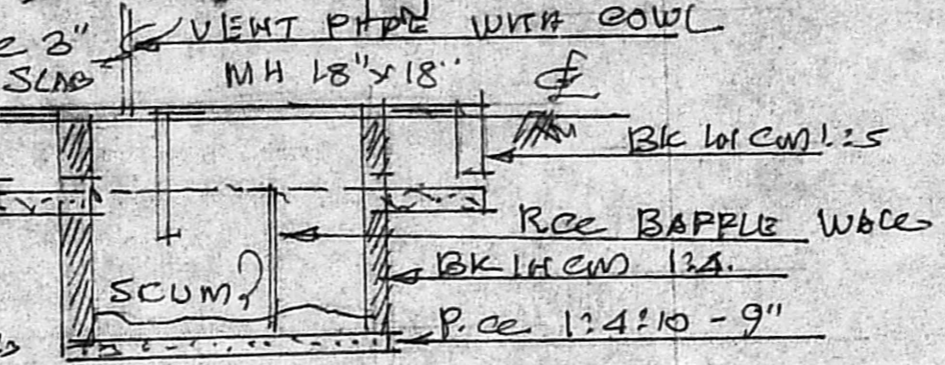 3"
SLAB
VENT PIPE WITH COWL
MH 18"x18"
GL
BK IN CM 1:5
RCC BAFFLE WALL
BK IN CM 1:4.
SCUM?
P.CC 1:4:10 - 9"